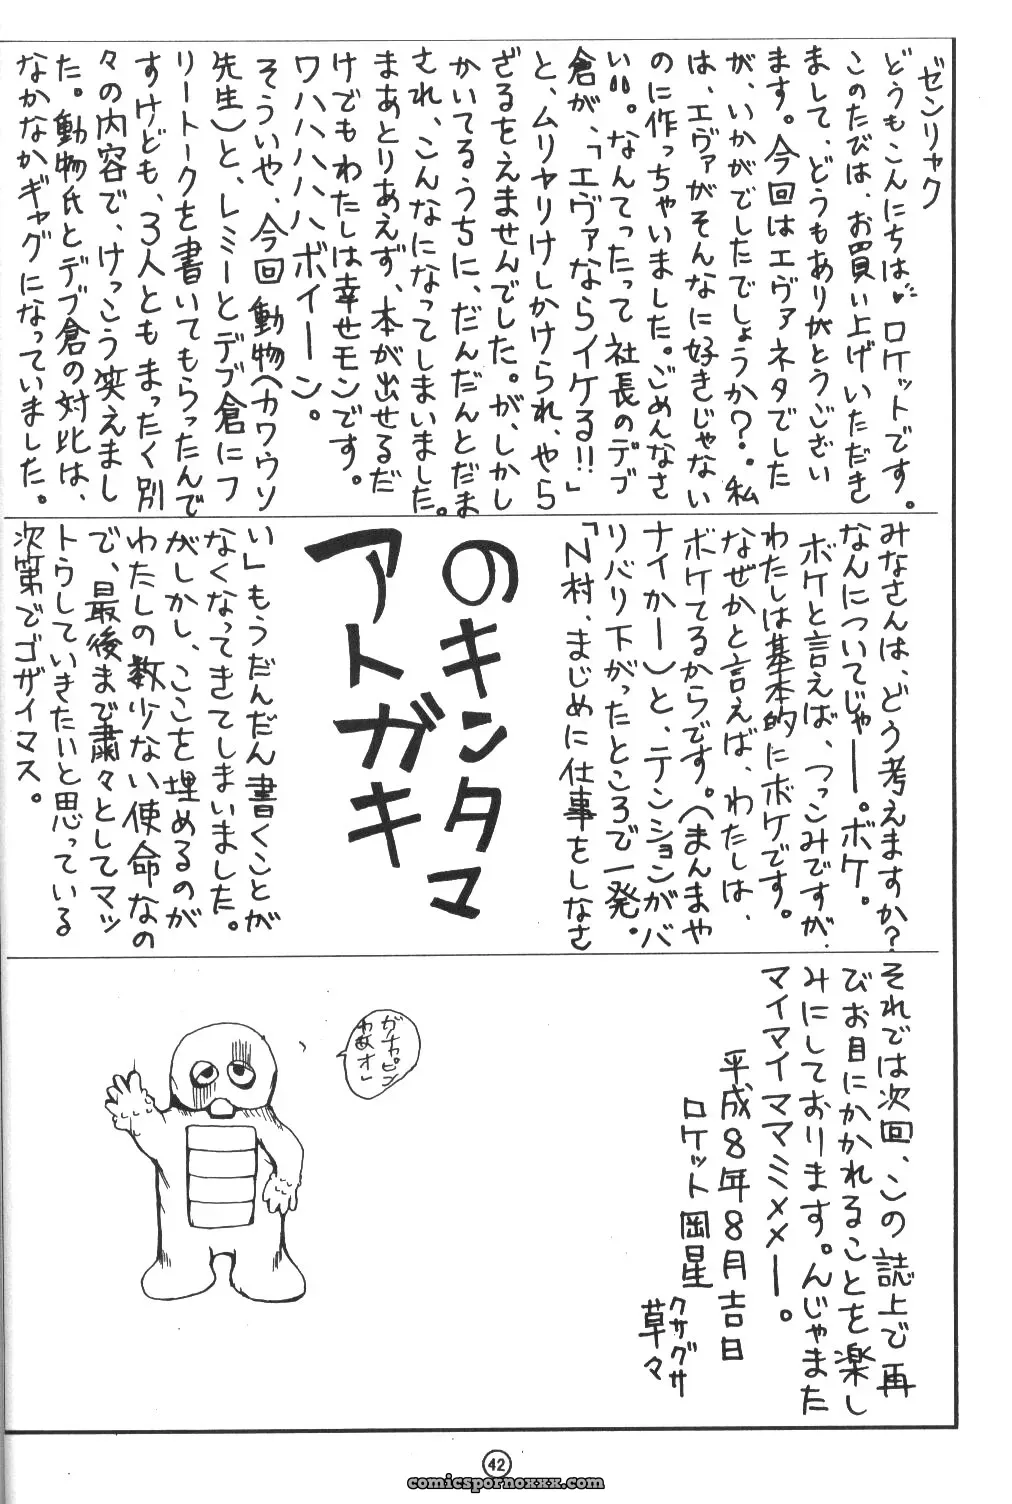 ゼンリャク
どうもこんにちは、ロケットです。
このたびは、お買い上げいただき
まして、どうもありがとうござい
ます。今回はエヴァネタでした
が、いかがでしたでしょうか?。私
は、エヴァがそんなに好きじゃない
のに作っちゃいました。ごめんなさ
い!!。なんてったって社長のデブ
倉が、「エヴァならイケる!!」
と、ムリヤリけしかけられ、やら
ざるをえませんでした。が、しかし
かいてるうちに、だんだんとだま
され、こんなになってしまいました。
まあとりあえず、本が出せるだ
けでもわたしは幸せモンです。
ワハハハハハボイーン。
そういや、今回動物(カワウソ
先生)と、レミーとデブ倉にフ
リートークを書いてもらったんで
すけども、3人ともまったく別
々の内容で、けっこう笑えまし
た。動物氏とデブ倉の対比は、
なかなかギャグになっていました。
みなさんは、どう考えますか?
なんについてじゃー。ボケ。
ボケと言えば、つっこみですが、
わたしは基本的にボケです。
なぜかと言えば、わたしは、
ボケてるからです。(まんまや
ナイかー)と、テンションがバ
リバリ下がったところで一発。
「N村、まじめに仕事をしなさ
のキンタマ
アトガキ
い」もうだんだん書くことが
なくなってきてしまいました。
がしかし、ここを埋めるのが
わたしの数少ない使命なの
で、最後まで粛々としてマッ
トウしていきたいと思っている
次第でゴザイマス。
それでは次回、この誌上で再
びお目にかかれることを楽し
みにしております。んじゃまた
マイマイママミメメー。
平成8年8月吉日
ロケット岡星
クサグサ
草々
ガチャピン
42
comicspornoxxx.com